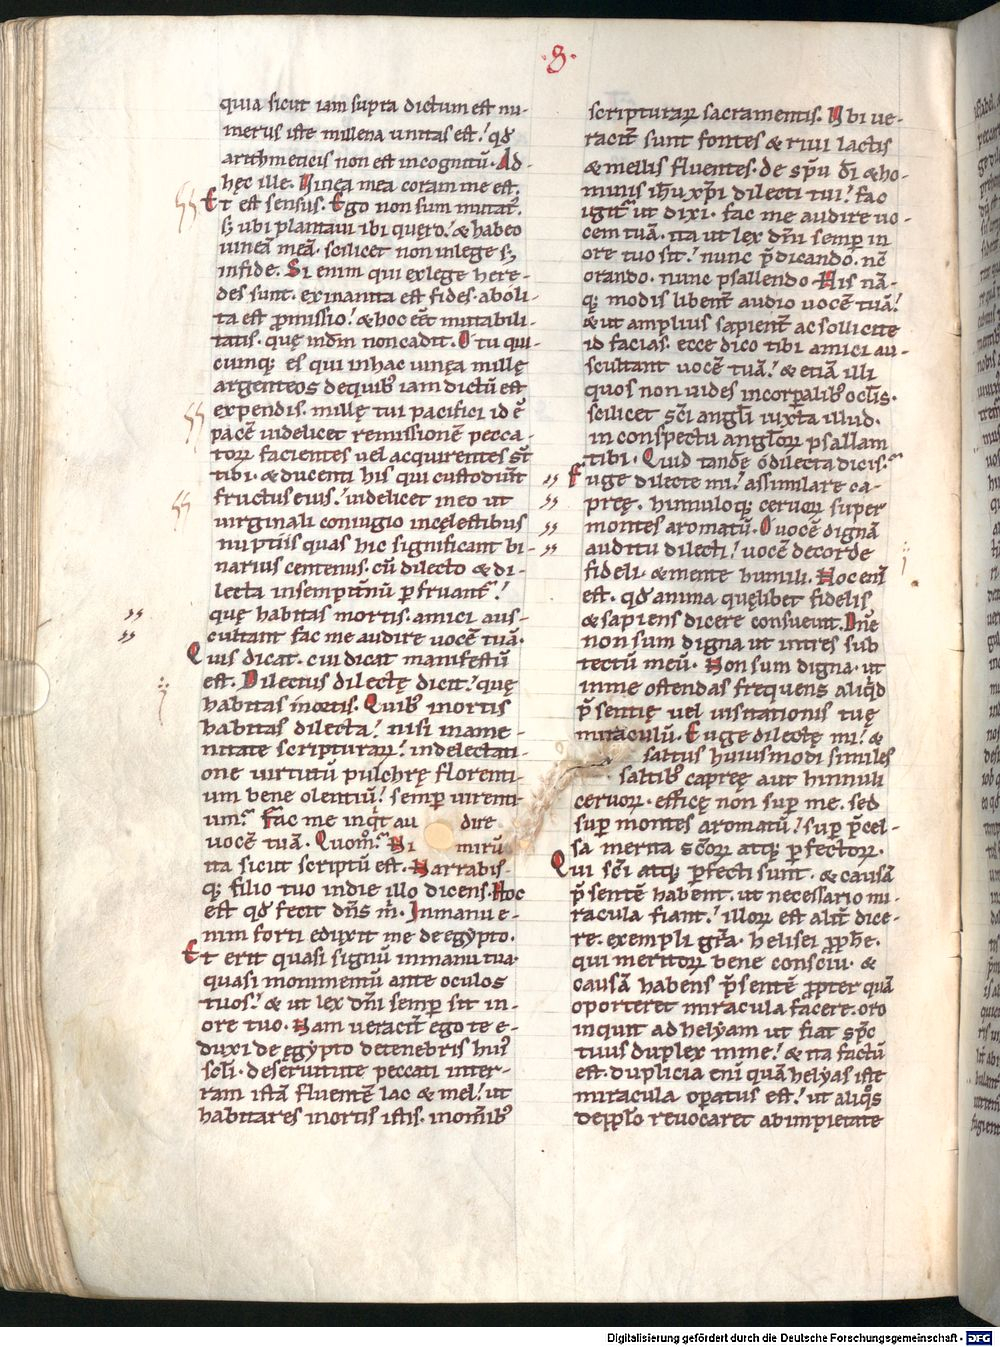 ·8·
quia sicut iam supra dictum est nu-
merus iste millena unitas est. qđ
arithmeticis non est incognitū. Ad
hęc ille. Vinea mea coram me est.
Et est sensus. Ego non sum mutat᷒.
sꝫ ubi plantaui ibi quęro. & habeo
uineā meā. scilicet non in lege sꝫ
in fide. Si enim qui ex lege here-
des sunt. exinanita est fides. aboli-
ta est ꝓmissio. & hoc eēt mutabili-
tatis. quę in dm̄ non cadit. O tu qui-
cunqꝫ es qui in hac uinea mille
argenteos de quibꝰ iam dictū est
expendis. mille tui pacifici id ē
pacē uidelicet remissionē pecca-
torꝝ facientes uel acquirentes st̄
tibi. & ducenti his qui custodiunt
fructus eius. uidelicet in eo ut
uirginali coniugio in cęlestibus
nuptiis quas hic significant bi-
narius centenus. cū dilecto & di-
lecta in sempit̄nū ꝑfruant᷒.
quę habitas in ortis. amici aus-
cultant fac me audire uocē tuā.
Quis dicat. cui dicat manifestū
est. Dilectus dilectę dicit. quę
habitas in ortis. Quibꝰ in ortis
habitas dilecta. nisi in ame-
nitate scripturarꝝ. in delectati-
one uirtutū pulchrę florenti-
um bene olentiū. semꝑ uirenti-
um. Fac me inqt̄ au dire
uocē tuā. Quom᷒. Ni mirū
ita sicut scriptū est. Narrabis-
qꝫ filio tuo in die illo dicens. Hoc
est qđ fecit dn̄s m̄. In manu e-
nim forti eduxit me de egypto.
Et erit quasi signū in manu tua
quasi monimentū ante oculos
tuos. & ut lex dn̄i semꝑ sit in
ore tuo. Nam ueracit̄ ego te e-
duxi de egypto de tenebris huiꝰ
sc̄li. de seruitute peccati in ter-
ram istā fluentē lac & mel. ut
habitares in ortis istis. in om̄ibꝰ
scripturarꝝ sacramentis. Vbi ue-
racit̄ sunt fontes & riui lactis
& mellis fluentes. de spū dī & ho-
minis ihū xp̄i dilecti tui. Fac
igit᷒ ut dixi. fac me audire uo-
cem tuā. ita ut lex dn̄i semꝑ in
ore tuo sit. nunc p̄dicando. nc̄
orando. nunc psallendo. His nā-
qꝫ modis libent̄ audio uocē tuā.
& ut amplius sapient̄ ac sollicite
id facias. ecce dico tibi amici au-
scultant uocē tuā. & etiā illi
quos non uides incorꝑalibꝰ ocl̄is.
scilicet sc̄i angl̄i iuxta illud.
in conspectu anglorꝝ psallam
tibi. Quid tandē o dilecta dicis.
Fuge dilecte mi. assimilare ca-
pręę. hinnuloqꝫ ceruorꝝ super
montes aromatū. O uocē dignā
auditu dilecti. uocē de corde
fideli. & mente humili. Hoc enī
est. qđ anima quęlibet fidelis
& sapiens dicere consueuit. Dn̄e
non sum digna ut intres sub
tectū meū. Non sum digna. ut
in me ostendas frequens aliqđ
p̄sentię uel uisitationis tuę
miraculū. Fuge dilectę mi. &
saltus huiusmodi similes
saltibꝰ capręę aut hinnuli
ceruorꝝ. efficę non sup me. sed
sup montes aromatū. sup p̄cel-
sa merita sc̄orꝝ atqꝫ ꝑfectorꝝ.
Qui sc̄i atqꝫ ꝑfecti sunt. & causā
p̄sentē habent. ut necessario mi-
racula fiant. illorꝝ est alit̄ dice-
re. exempli gr̄a. helisei ꝓph̄e.
qui meritorꝝ bene consciū. &
causā habens p̄sentē ꝓpter quā
oporteret miracula facere. oro
inquit ad helyam ut fiat spc̄
tuus duplex in me. & ita factū
est. Duplicia eni quā helyas iste
miracula oꝑatus est. ut aliqͦs
de ppl̄o reuocaret ab impietate
Digitalisierung gefördert durch die Deutsche Forschungsgemeinschaft - DFG